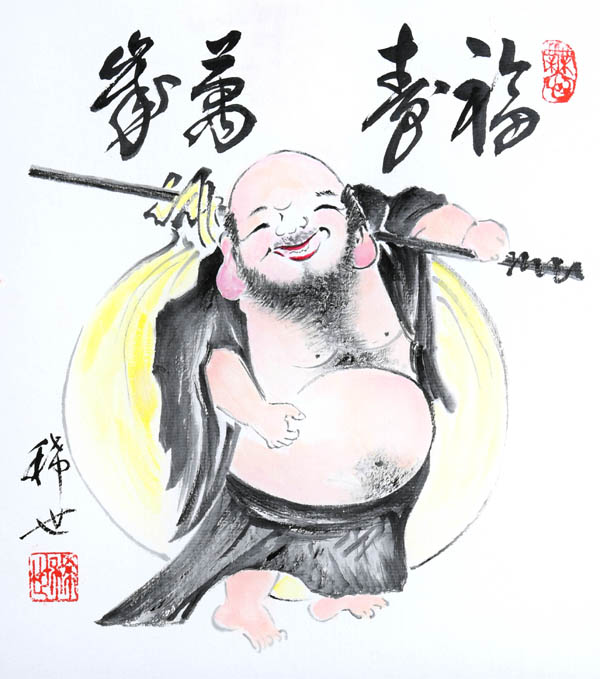 福寿萬歳
稀世